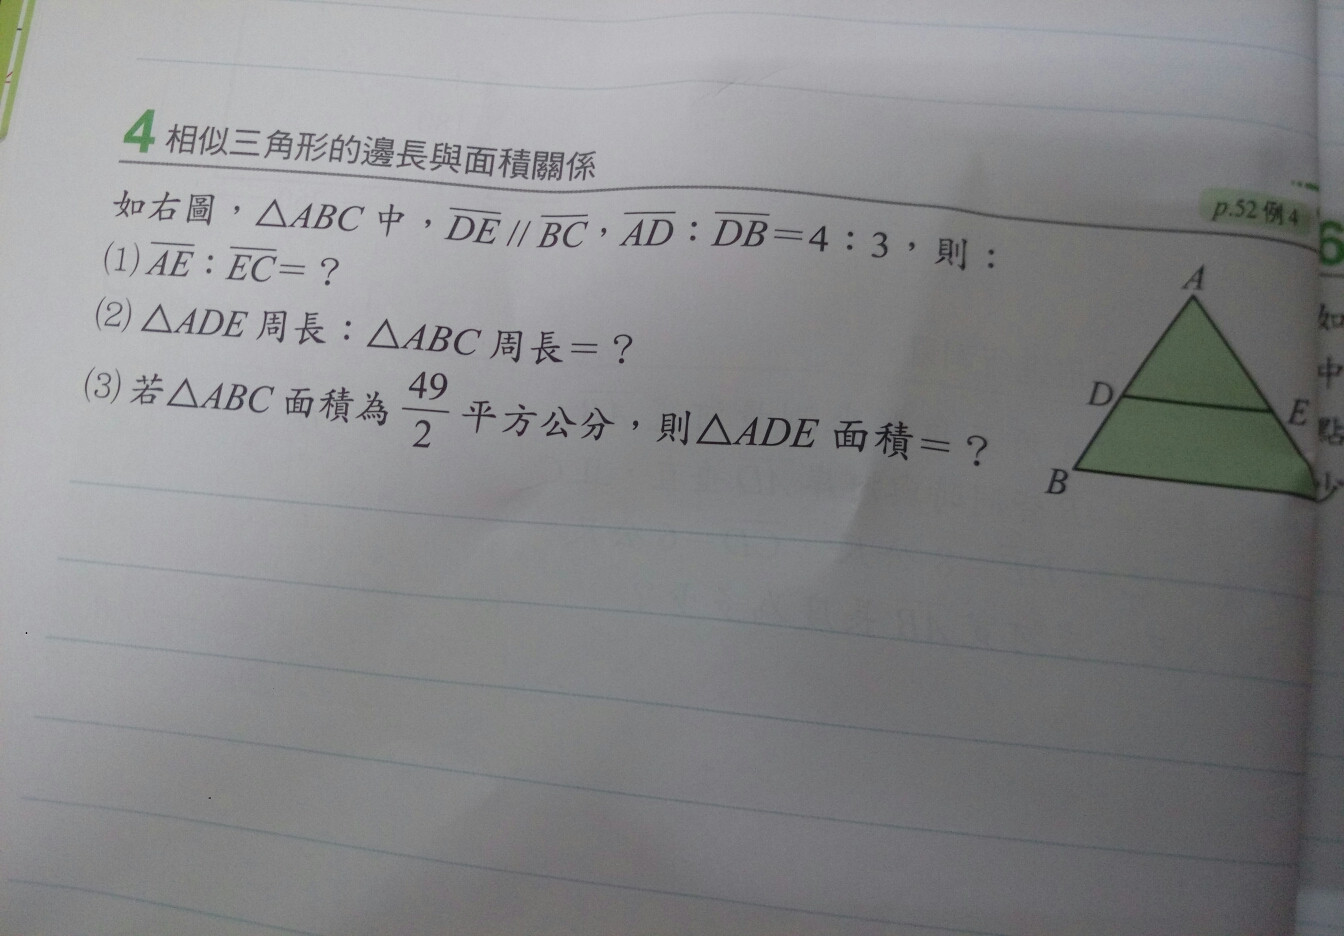 4 相似三角形的邊長與面積關係
p.52 例 4
如右圖，△ABC 中，DE // BC，AD：DB＝4：3，則：
(1) AE：EC＝？
(2) △ADE 周長：△ABC 周長＝？
(3) 若△ABC 面積為 49/2 平方公分，則△ADE 面積＝？
A
D
E
B
6
如
中
點
少